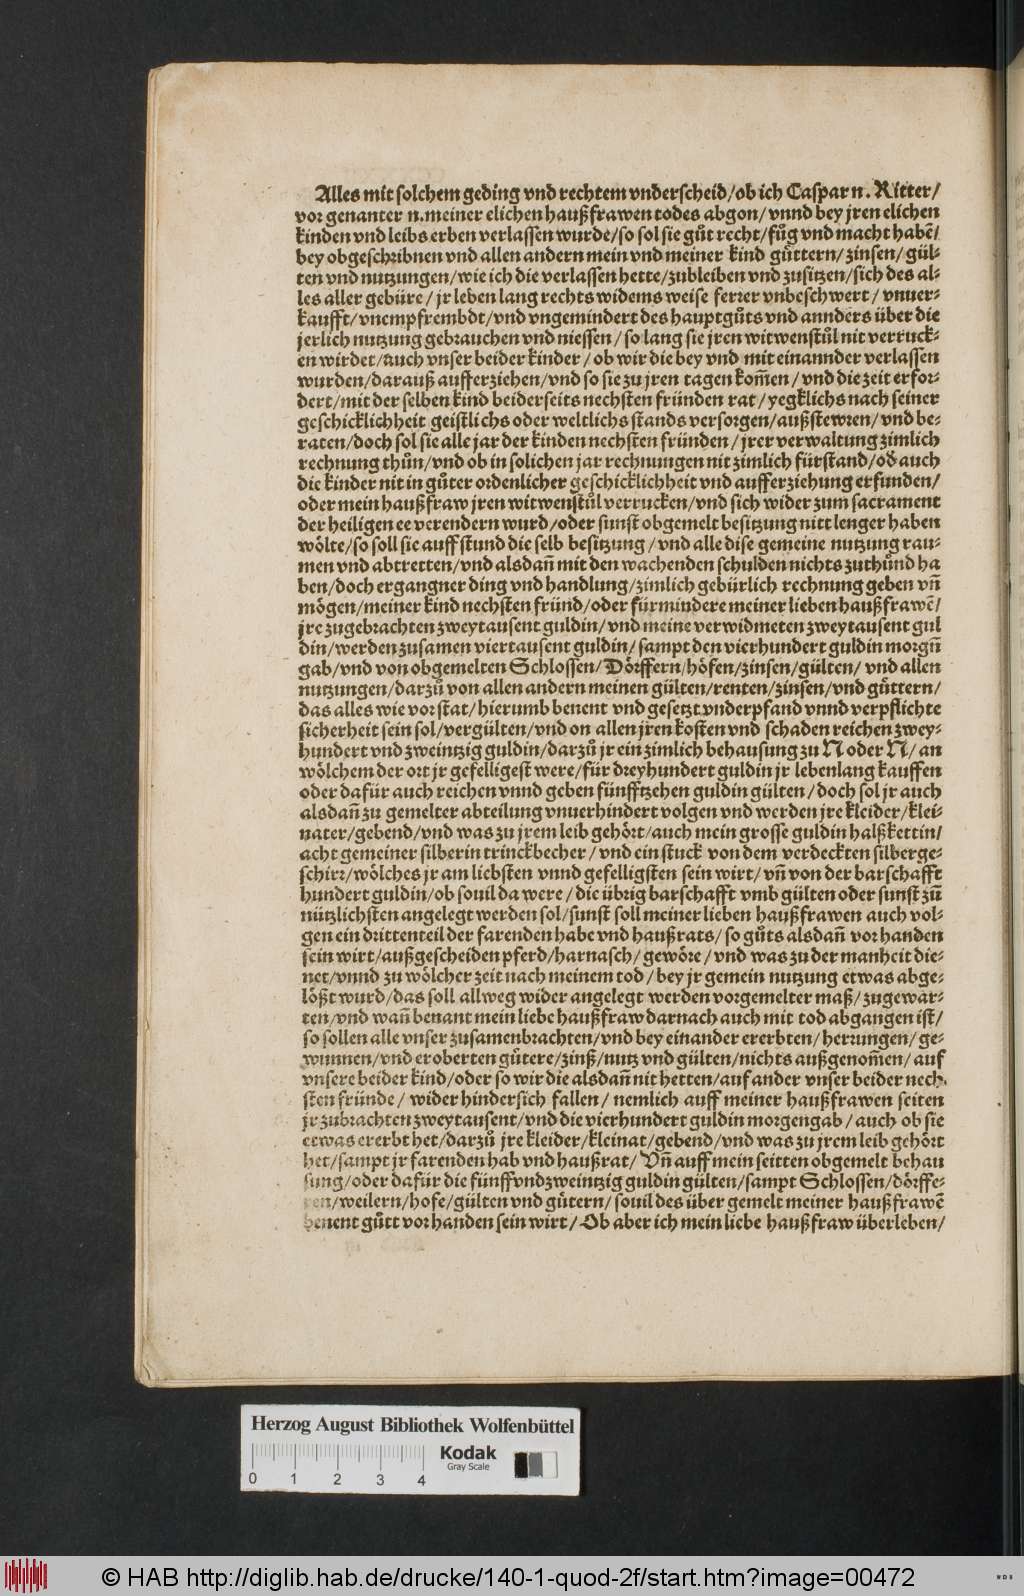 Alles mit solchem geding vnd rechtem vnderscheid/ob ich Caspar n. Ritter/
vor genanter n.meiner elichen haußfrawen todes abgon/vnnd bey jren elichen
kinden vnd leibs erben verlassen wurde/so sol sie gůt recht/fůg vnd macht habē/
bey obgeschribnen vnd allen andern mein vnd meiner kind gůttern/zinsen/gül-
ten vnd nutzungen/wie ich die verlassen hette/zubleiben vnd zusitzen/sich des al-
les aller gebüre/jr leben lang rechts widems weise ferrer vnbeschwert/vnuer-
kaufft/vnempfrembdt/vnd vngemindert des hauptgůts vnd annders über die
jerlich nutzung gebrauchen vnd niessen/so lang sie jren witwenstůl nit verruck-
en wirdet/auch vnser beider kinder/ob wir die bey vnd mit einannder verlassen
wurden/darauß aufferziehen/vnd so sie zu jren tagen kom̄en/vnd die zeit erfor-
dert/mit der selben kind beiderseits nechsten fründen rat/yegklichs nach seiner
geschicklichheit geistlichs oder weltlichs stands versorgen/außstewren/vnd be-
raten/doch sol sie alle jar der kinden nechsten fründen/jrer verwaltung zimlich
rechnung thůn/vnd ob in solichen jar rechnungen nit zimlich fürstand/od̕ auch
die kinder nit in gůter ordenlicher geschicklichheit vnd aufferziehung erfunden/
oder mein haußfraw jren witwenstůl verrucken/vnd sich wider zum sacrament
der heiligen ee verendern wurd/oder sunst obgemelt besitzung nitt lenger haben
wölte/so soll sie auff stund die selb besitzung/vnd alle dise gemeine nutzung rau-
men vnd abtretten/vnd alsdañ mit den wachenden schulden nichts zuthůnd ha
ben/doch ergangner ding vnd handlung/zimlich gebürlich rechnung geben vñ
mögen/meiner kind nechsten fründ/oder fürmindere meiner lieben haußfrawē/
jre zugebrachten zweytausent guldin/vnd meine verwidmeten zweytausent gul
din/werden zusamen viertausent guldin/sampt den vierhundert guldin morgñ
gab/vnd von obgemelten Schlossen/Dörffern/höfen/zinsen/gülten/vnd allen
nutzungen/darzů von allen andern meinen gülten/renten/zinsen/vnd gůttern/
das alles wie vor stat/hierumb benent vnd gesetzt vnderpfand vnnd verpflichte
sicherheit sein sol/vergülten/vnd on allen jren kosten vnd schaden reichen zwey-
hundert vnd zweintzig guldin/darzů jr ein zimlich behausung zu N oder N/an
wölchem der ort jr gefelligest were/für dreyhundert guldin jr lebenlang kauffen
oder dafür auch reichen vnnd geben fünfftzehen guldin gülten/doch sol jr auch
alsdañ zu gemelter abteilung vnuerhindert volgen vnd werden jre kleider/klei-
nater/gebend/vnd was zu jrem leib gehört/auch mein grosse guldin halßkettin/
acht gemeiner silberin trinckbecher/vnd ein stuck von dem verdeckten silberge-
schirr/wölches jr am liebsten vnnd gefelligsten sein wirt/vñ von der barschafft
hundert guldin/ob souil da were/die übrig barschafft vmb gülten oder sunst zū
nützlichsten angelegt werden sol/sunst soll meiner lieben haußfrawen auch vol-
gen ein drittenteil der farenden habe vnd haußrats/so gůts alsdañ vorhanden
sein wirt/außgescheiden pferd/harnasch/gewöre/vnd was zu der manheit die-
net/vnnd zu wölcher zeit nach meinem tod/bey jr gemein nutzung etwas abge-
lößt wurd/das soll allweg wider angelegt werden vorgemelter maß/zugewar-
ten/vnd wañ benant mein liebe haußfraw darnach auch mit tod abgangen ist/
so sollen alle vnser zusamenbrachten/vnd bey einander ererbten/herrungen/ge-
wunnen/vnd eroberten gůtere/zinß/nutz vnd gülten/nichts außgenom̄en/auf
vnsere beider kind/oder so wir die alsdañ nit hetten/auf ander vnser beider nech-
sten fründe/wider hindersich fallen/nemlich auff meiner haußfrawen seiten
jr zubrachten zweytausent/vnd die vierhundert guldin morgengab/auch ob sie
etwas ererbt het/darzů jre kleider/kleinat/gebend/vnd was zu jrem leib gehört
het/sampt jr farenden hab vnd haußrat/Vñ auff mein seitten obgemelt behau
sung/oder dafür die fünffvndzweintzig guldin gülten/sampt Schlossen/dörffe-
ren/weilern/hofe/gülten vnd gůtern/souil des über gemelt meiner haußfrawē
benent gůtt vorhanden sein wirt/Ob aber ich mein liebe haußfraw überleben/
Herzog August Bibliothek Wolfenbüttel
Kodak
Gray Scale
0 1 2 3 4
© HAB http://diglib.hab.de/drucke/140-1-quod-2f/start.htm?image=00472